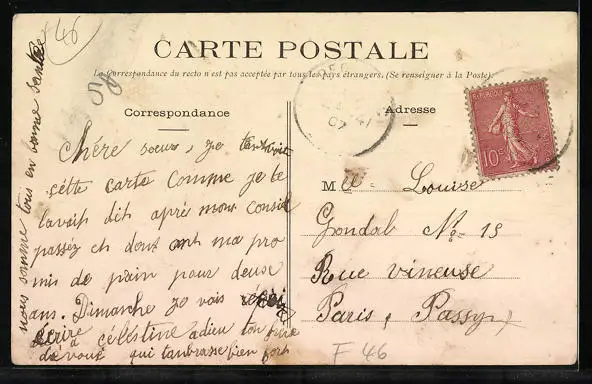 46
CARTE POSTALE
La Correspondance du recto n'est pas acceptée par tous les pays étrangers. (Se renseigner à la Poste)
58
Correspondance
Adresse
07
REPUBLIQUE FRANÇAISE
10c
Chére soeur, je
cétte carte comme je te
lavait dit aprè mon conseil
passéz et dont ont ma pro
mis de pain pour deuse
ans. Dimanche je vais
écrire a célèstine adieu ton frère
dévoué qui tanbrasse bien fort
nous somme tous en bonne santée
Mlle Louise
Gondal No 15
Rue vineuse
Paris, Passy
F 46